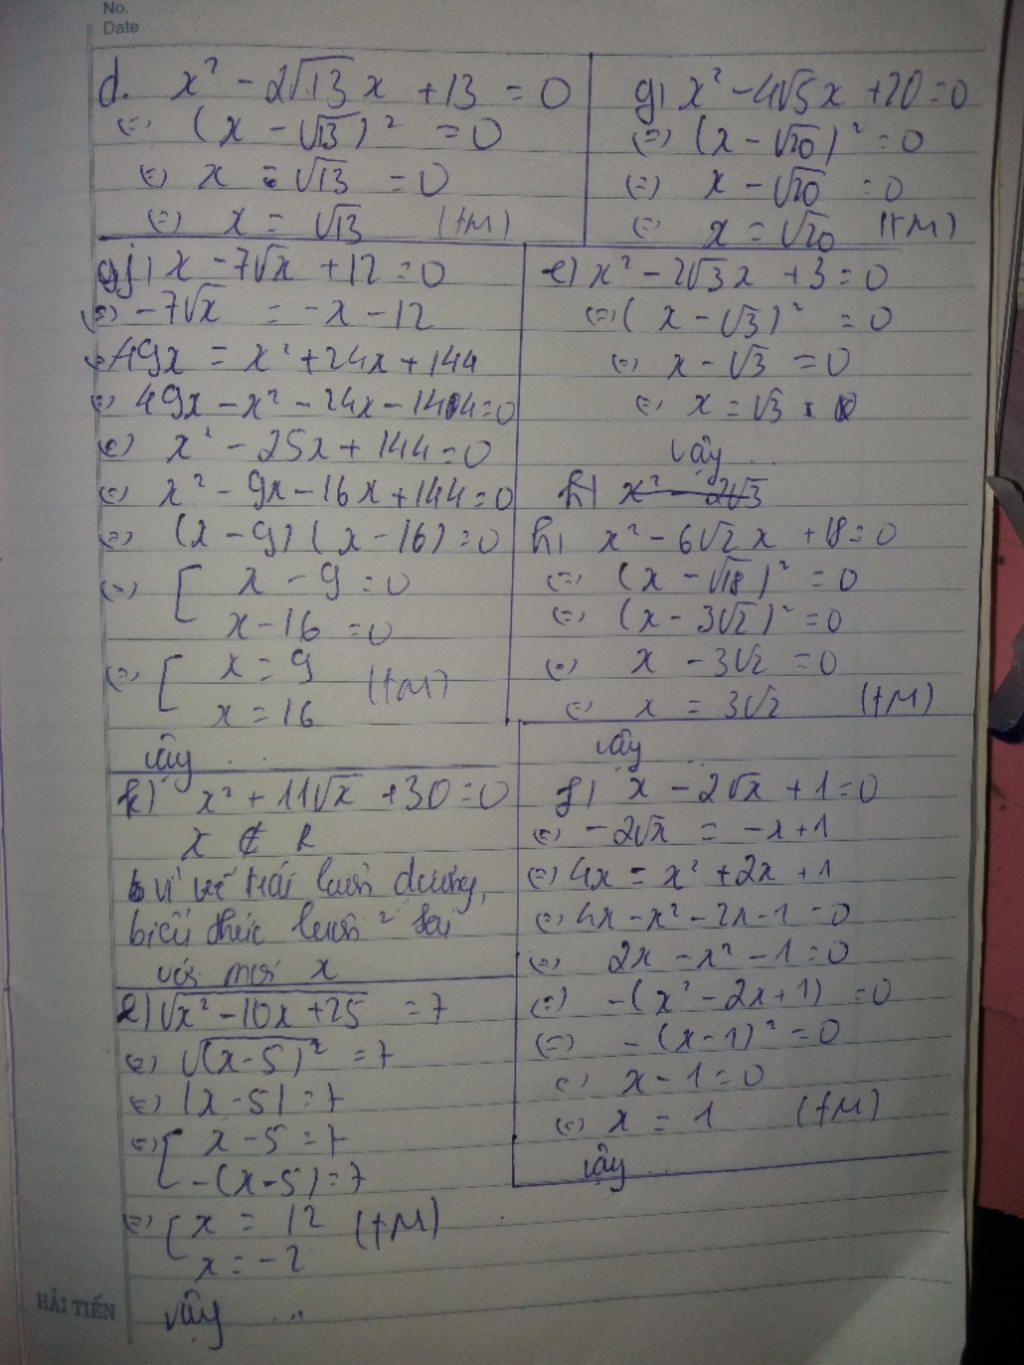 No.
Date
d. x² - 2√13 x + 13 = 0
(=) (x - √13)² = 0
(=) x = √13 = 0
(=) x = √13 (tM)
g) x² - 4√5x + 20 = 0
(=) (x - √20)² = 0
(=) x - √20 = 0
(=) x = √20 (tM)
j) x - 7√x + 12 = 0
(=) -7√x = -x - 12
49x = x² + 24x + 144
(=) 49x - x² - 24x - 144 = 0
(=) x² - 25x + 144 = 0
(=) x² - 9x - 16x + 144 = 0
(=) (x - 9)(x - 16) = 0
(=) [ x - 9 = 0
x - 16 = 0
(=) [ x = 9 (tM)
x = 16
Vậy ..
e) x² - 2√3x + 3 = 0
(=) (x - √3)² = 0
(=) x - √3 = 0
(=) x = √3
Vậy ..
h) x² - 2√3
h) x² - 6√2x + 18 = 0
(=) (x - √18)² = 0
(=) (x - 3√2)² = 0
(=) x - 3√2 = 0
(=) x = 3√2 (tM)
Vậy
k) x² + 11√x + 30 = 0
x ∉ R
vì vế trái luôn dương,
biểu thức luôn sai
với mọi x
l) √x² - 10x + 25 = 7
(=) √(x - 5)² = 7
(=) |x - 5| = 7
(=) [ x - 5 = 7
-(x - 5) = 7
(=) [ x = 12 (tM)
x = -2
Vậy ..
f) x - 2√x + 1 = 0
(=) -2√x = -x + 1
(=) 4x = x² + 2x + 1
(=) 4x - x² - 2x - 1 = 0
(=) 2x - x² - 1 = 0
(=) -(x² - 2x + 1) = 0
(=) -(x - 1)² = 0
(=) x - 1 = 0
(=) x = 1 (tM)
Vậy ..
HẢI TIẾN